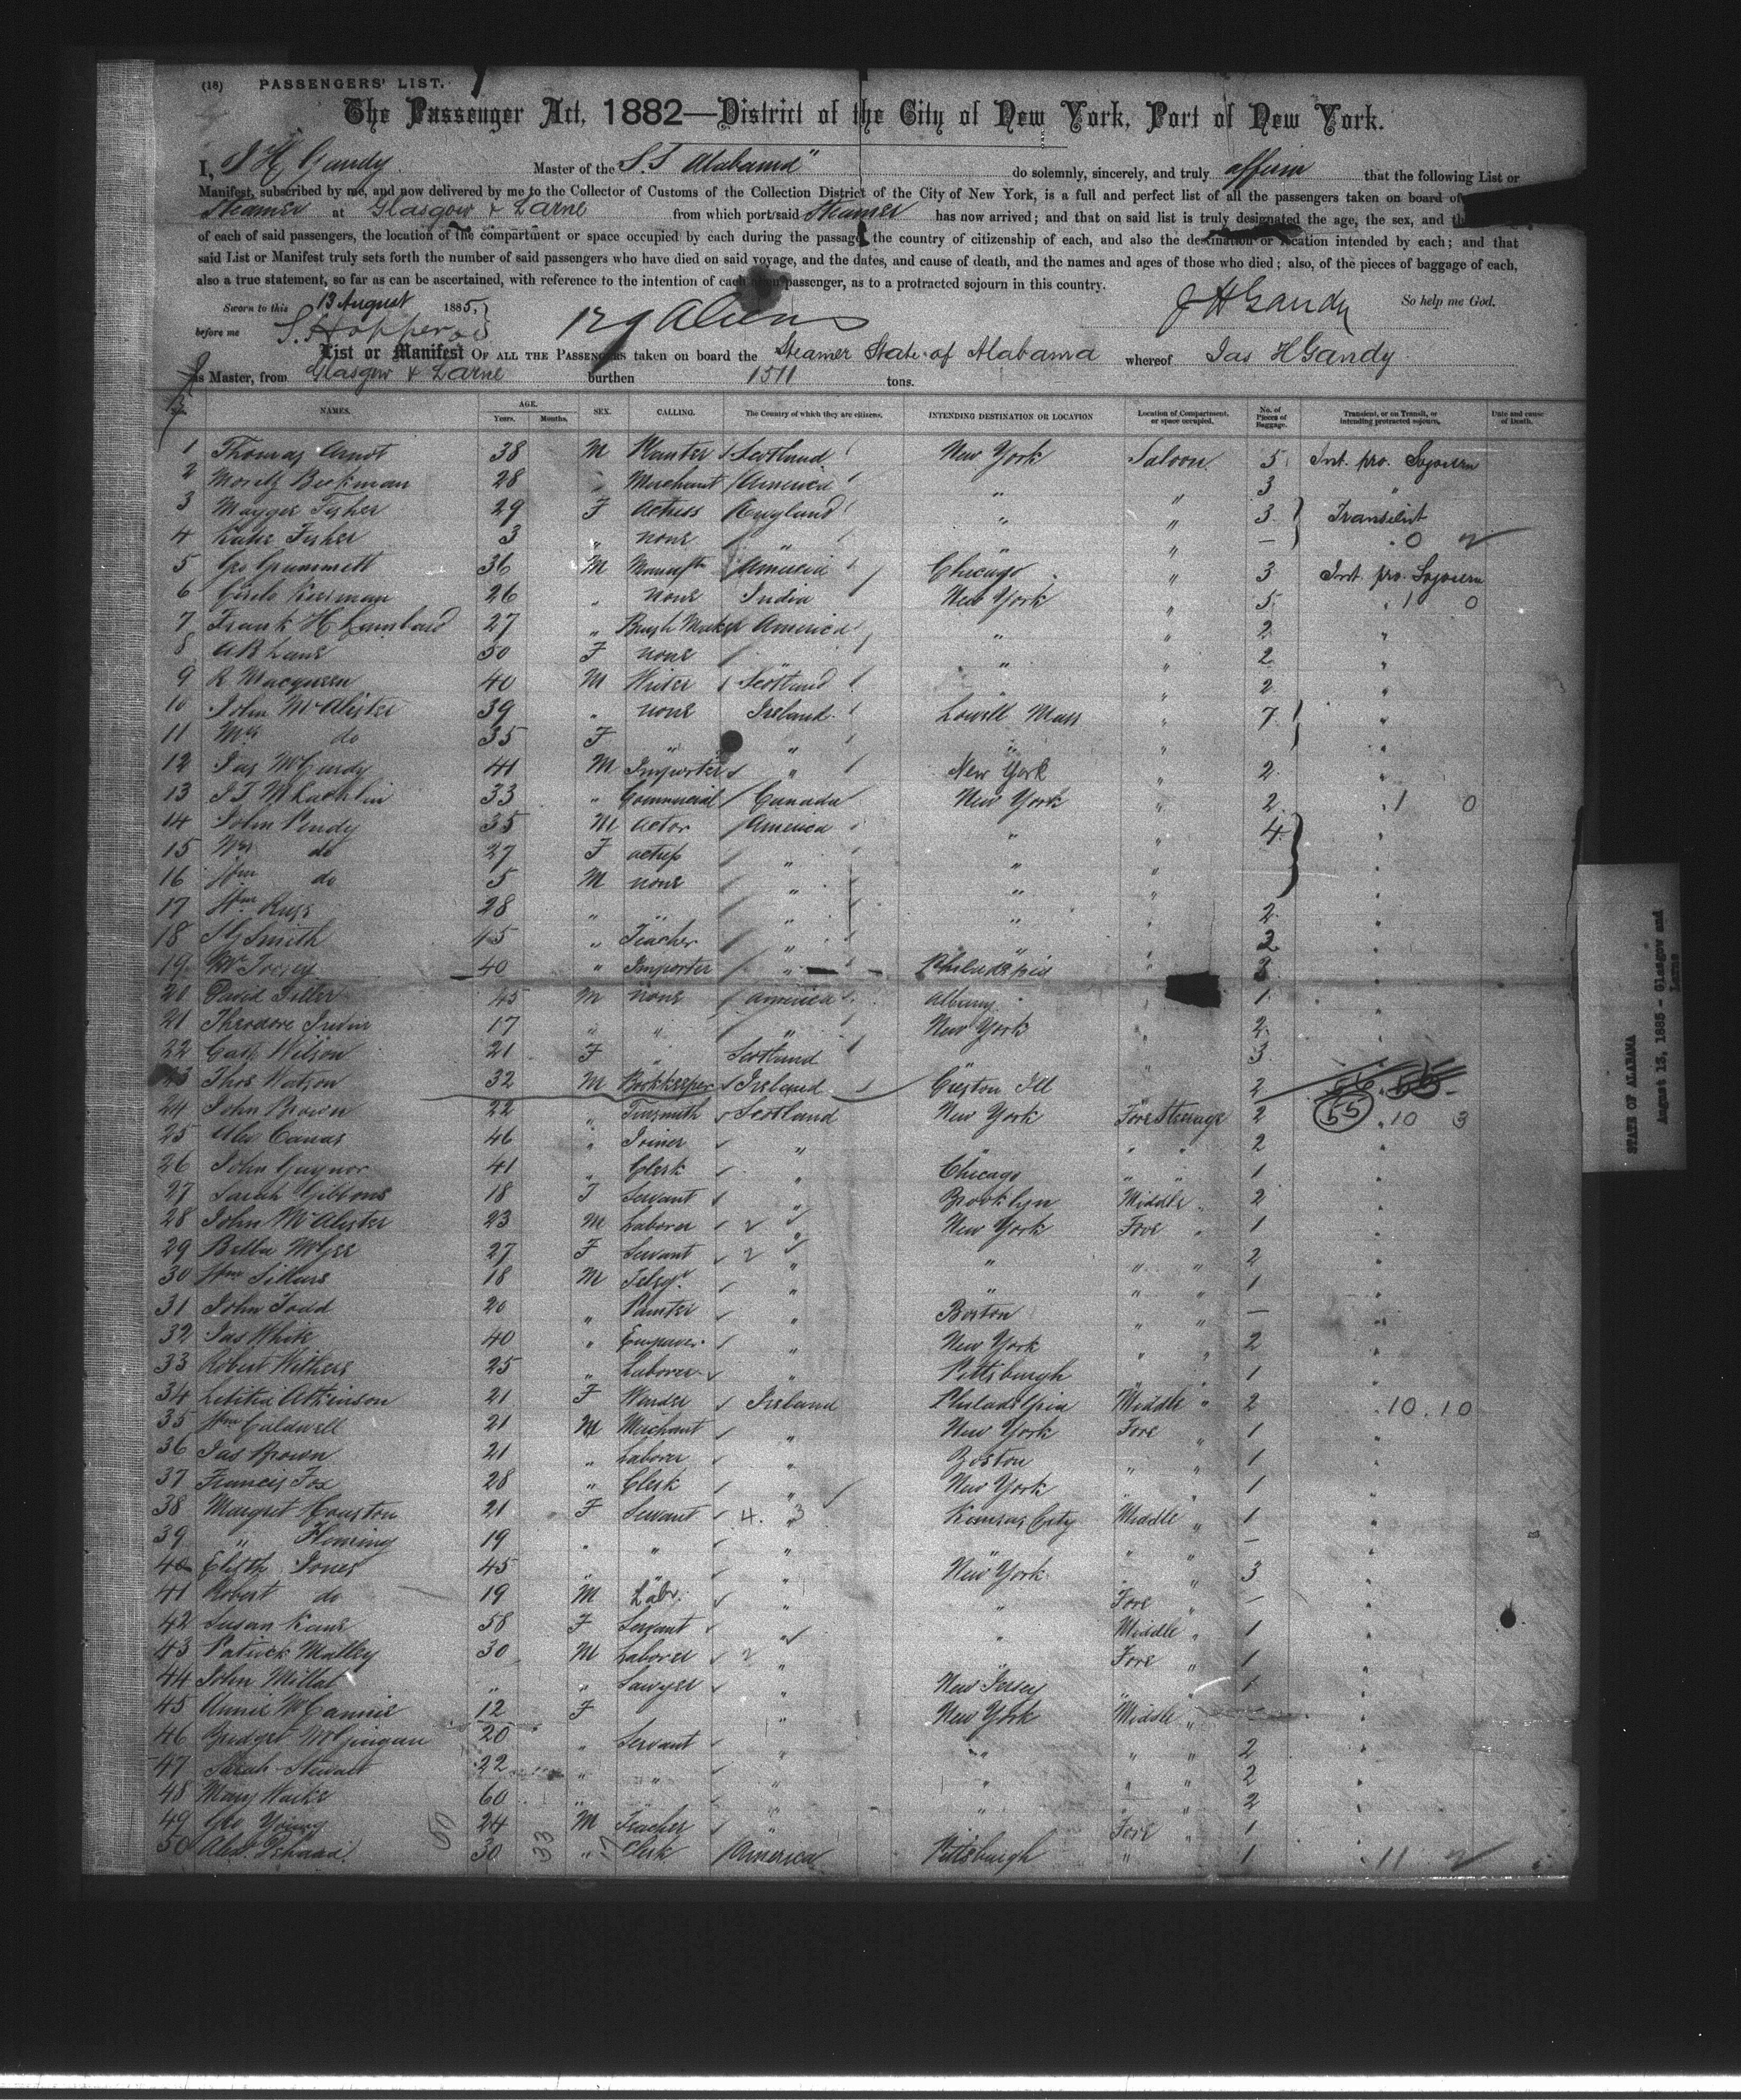 (18) PASSENGERS' LIST.
The Passenger Act, 1882—District of the City of New York, Port of New York.
I, J H Gandy Master of the S.S Alabama" do solemnly, sincerely, and truly affirm that the following List or
Manifest, subscribed by me, and now delivered by me to the Collector of Customs of the Collection District of the City of New York, is a full and perfect list of all the passengers taken on board of
Steamer at Glasgow & Larne from which port said Steamer has now arrived; and that on said list is truly designated the age, the sex, and
of each of said passengers, the location of the compartment or space occupied by each during the passage, the country of citizenship of each, and also the destination or location intended by each; and that
said List or Manifest truly sets forth the number of said passengers who have died on said voyage, and the dates, and cause of death, and the names and ages of those who died; also, of the pieces of baggage of each,
also a true statement, so far as can be ascertained, with reference to the intention of each passenger, as to a protracted sojourn in this country.
Sworn to this 13 August 1885, So help me God.
before me S. Hopper 129 Aliens J H Gandy
List or Manifest OF ALL THE PASSENGERS taken on board the Steamer State of Alabama whereof Jas H Gandy
as Master, from Glasgow & Larne burthen 1511 tons.
NAMES. AGE. Years. Months. SEX. CALLING. The Country of which they are citizens. INTENDING DESTINATION OR LOCATION Location of Compartment, or space occupied. No. of Pieces of Baggage. Transient, or on Transit, or intending protracted sojourn. Date and cause of Death.
1 Thomas Arndt 38 M Planter Scotland New York Saloon 5 Int. pro. Sojourn
2 Beekman 28 " Merchant America " " 3 "
3 Fisher 29 F Actress England " " 3 Transient
4 Katie Fisher 3 " none " " " — 0
5 Geo Grummett 36 M America Chicago " 3 Int. pro. Sojourn
6 26 " none India New York " 5 " 1 0
7 Frank H Lambard 27 " Brush Maker America " " 2 "
8 A R Lane 50 F none " " 2 "
9 R Macqueen 40 M Writer Scotland " 2 "
10 John McAlister 39 " none Ireland Lowell Mass " 7 "
11 Mrs do 35 F " " " " "
12 Jas McGurdy 41 M Importer " New York " 2 "
13 J T McLachlin 33 " Commercial Canada New York " 2 " 1 0
14 John Pendy 35 M Actor America " " 4 "
15 Mrs do 27 F actress " " " "
16 Wm do 5 M none " " " "
17 Wm Russ 28 " " " " " 2 "
18 Smith 45 " Teacher " " " 2 "
19 Mr 40 " Importer " Philadelphia " 3 "
20 David 45 M none America Albany 1 "
21 Theodore 17 " " " New York " 2 "
22 Cath Wilson 21 F " Scotland " 3 "
23 Thos Watson 32 M Bookkeeper Ireland Creston Ill " 2
24 John Brown 22 " Tinsmith Scotland New York Fore Steerage 2 55 " 10 3
25 Alex 46 " Joiner " " " " 2 "
26 John Gaynor 41 " Clerk " Chicago " " 1 "
27 Sarah Gibbons 18 F Servant " Brooklyn Middle " 2 "
28 John McAlister 23 M Laborer 2 " New York Fore " 1 "
29 Bella McGee 27 F Servant 2 " " " " 2 "
30 Wm 18 M " " " " 1 "
31 John Todd 20 " Painter " Boston " " — "
32 Jas White 40 " Engraver " New York " " 2 "
33 Robert Withers 25 " Laborer " Pittsburgh " " 1 "
34 Letitia Atkinson 21 F Ireland Philadelphia Middle " 2 " 10.10
35 Wm Caldwell 21 M Merchant " New York Fore " 1 "
36 Jas Brown 21 " Laborer " Boston " " 1 "
37 Francis Fox 28 " Clerk " New York " " 1 "
38 Margret Houston 21 F Servant 4. 3 " Kansas City Middle " 1 "
39 " Fleming 19 " " " " " " — "
40 Elisth Jones 45 " " " New York " " 3 "
41 Robert do 19 M Labr. " " Fore " — "
42 Susan Kane 58 F Servant " " Middle " 1 "
43 Patrick Malley 30 M Laborer 2 " " Fore " 1 "
44 John Millar " " Sawyer " New Jersey " " 1 "
45 Annie McCannie 12 F " New York Middle " — "
46 Bridget 20 " Servant " " " " 2 "
47 Sarah Stewart 22 " " " " " " 2 "
48 Mary 60 " " " " " " 2 "
49 Geo Young 24 M Teacher " " Fore " 1 "
50 Alex. 30 " Clerk America Pittsburgh " 1 " 11
STATE OF ALABAMA
August 13, 1885 - Glasgow and
Larne